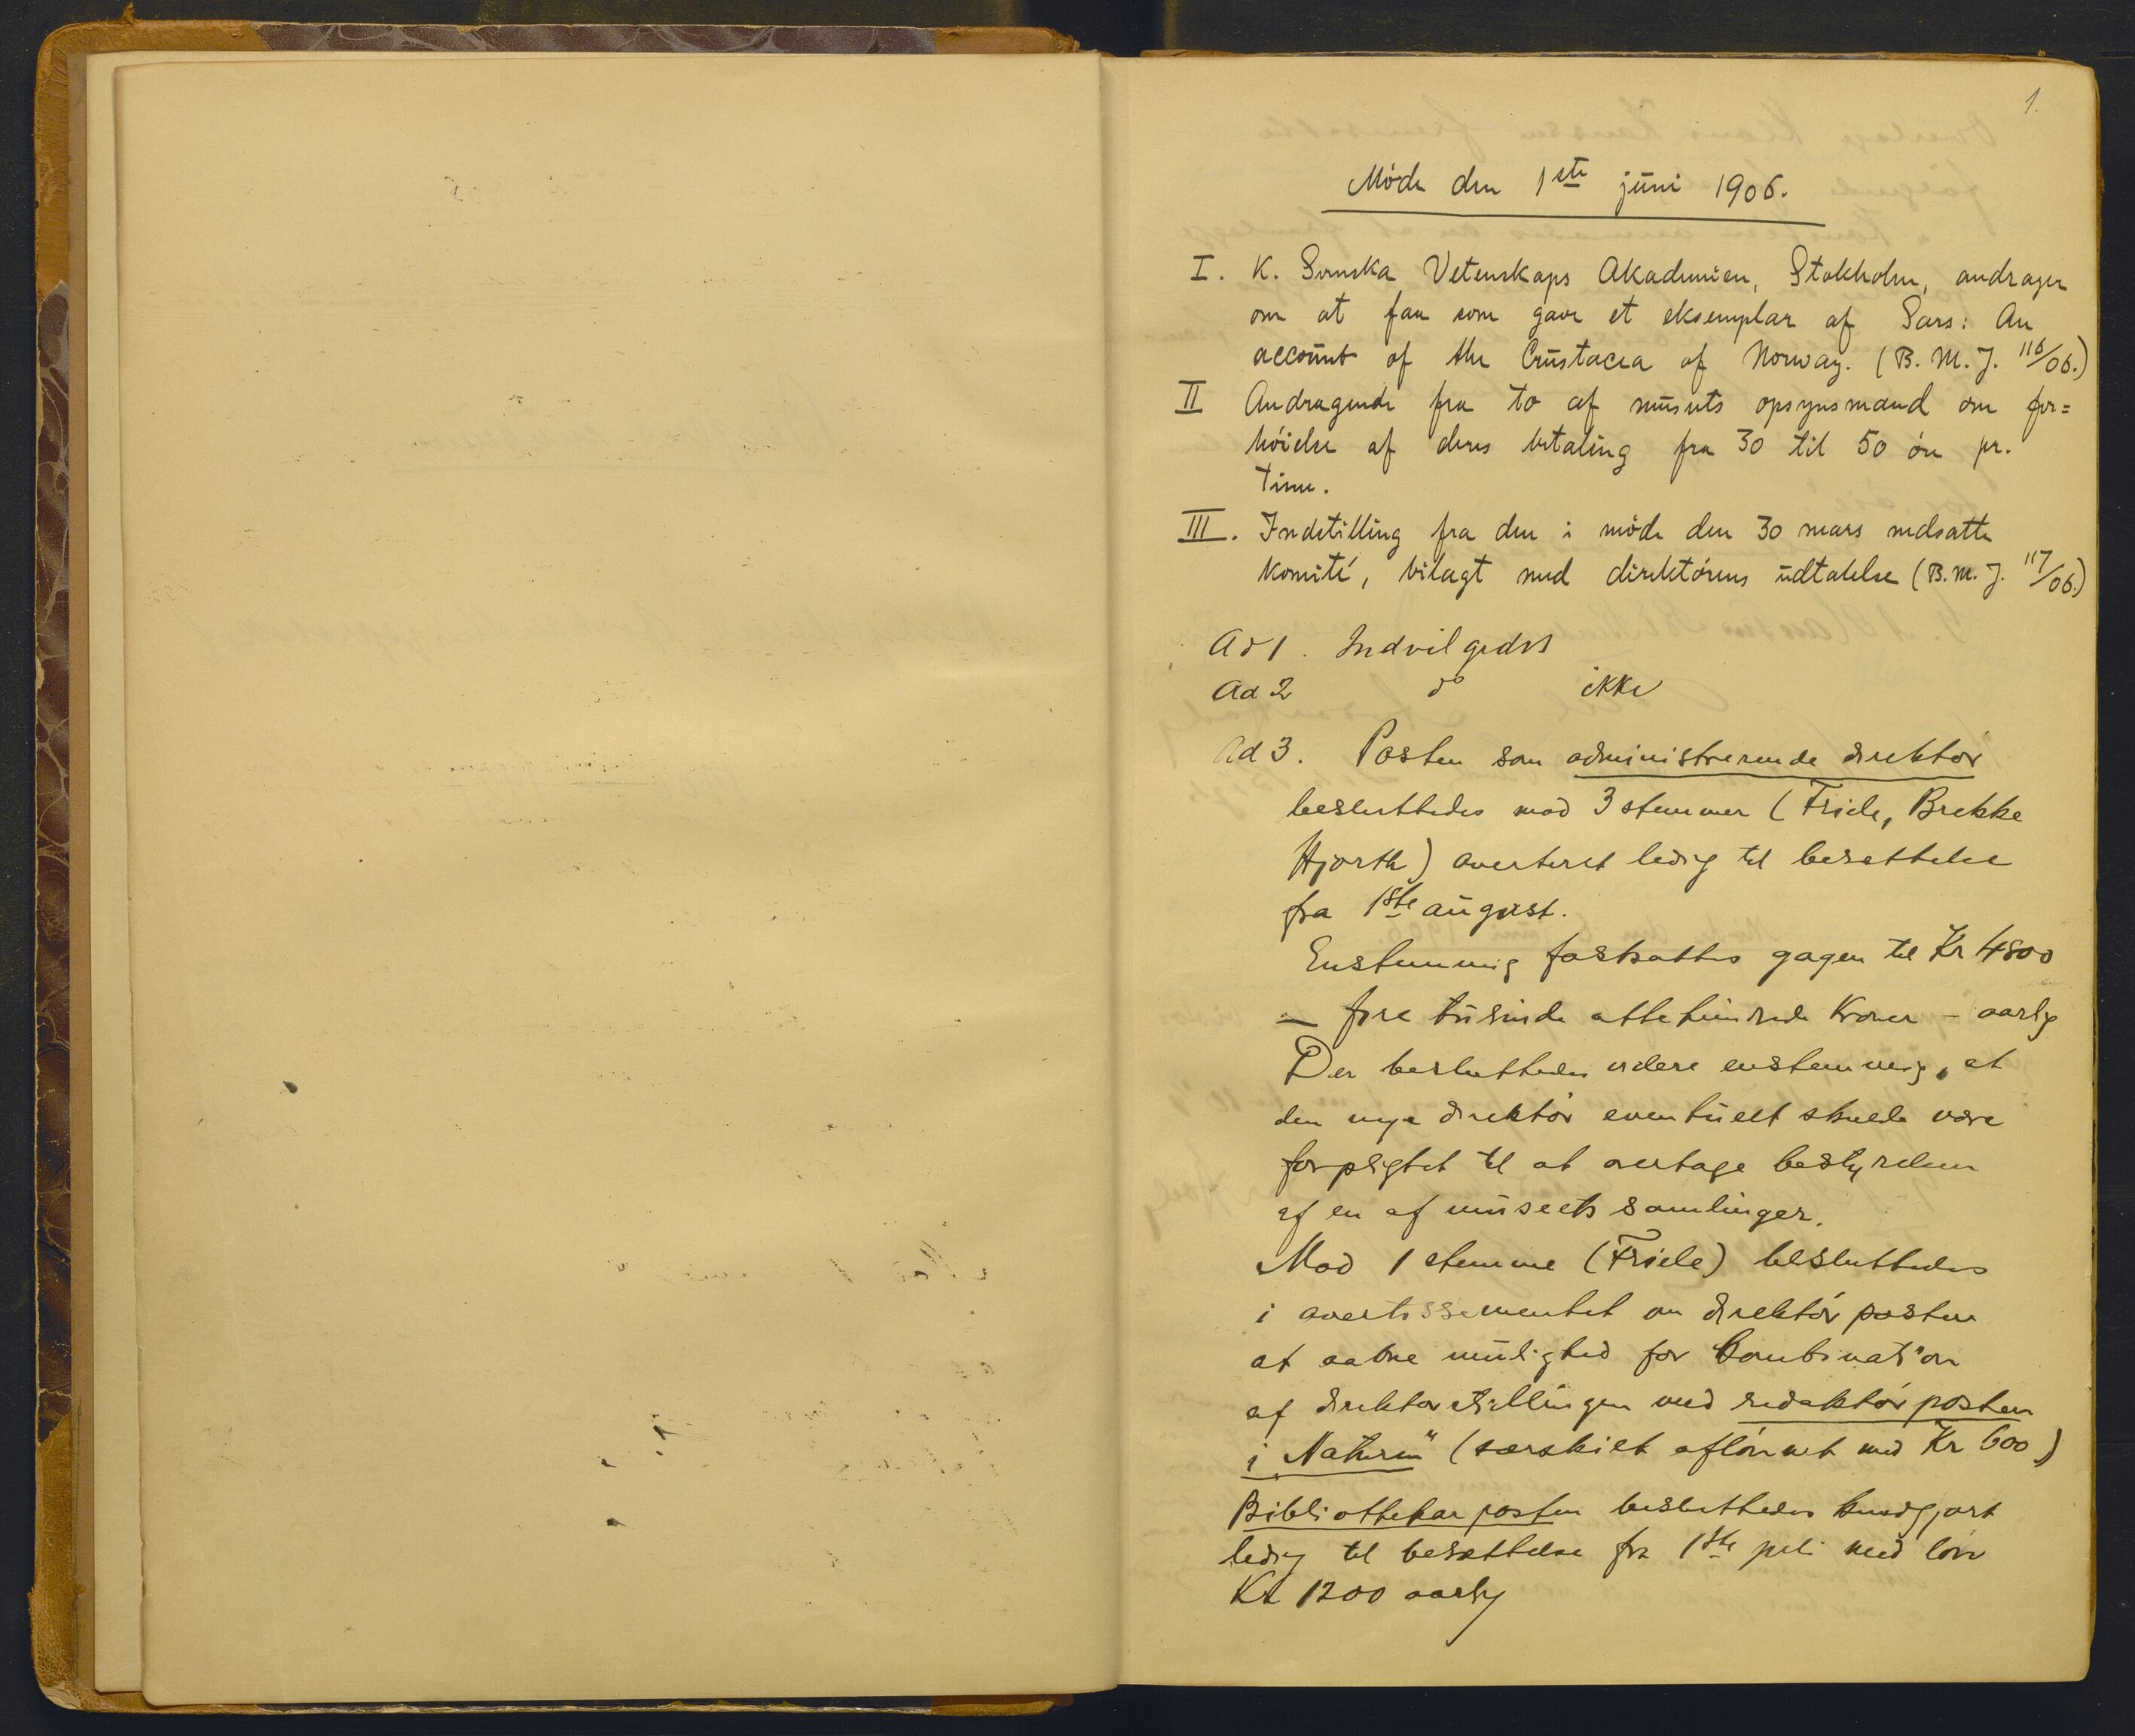 1.
Møde den 1ste juni 1906.
I. K. Svenska Vetenskaps Akademien, Stokholm, andrager
om at faa som gave et eksemplar af Sars: An
account of the Crustacea of Norway. (B. M. J. 116/06.)
II Andragende fra to af museets opsynsmænd om for=
høielse af deres betaling fra 30 til 50 øre pr.
time.
III. Indstilling fra den i møde den 30 mars nedsatte
komité, bilagt med direktørens udtalelse (B. M. J. 117/06.)
Ad 1. Indvilgedes
Ad 2 do ikke
Ad 3. Posten som administrerende direktør
besluttedes mod 3 stemmer (Friele, Brekke
Hjorth) averteret ledig til besættelse
fra 1ste august.
Enstemmig fastsattes gagen til Kr 4800
— fire tusinde ottehundrede kroner – aarlig
Der besluttedes videre enstemmig, at
den nye direktør eventuelt skulde være
forpligtet til at overtage bestyrelsen
af en af museets samlinger.
Mod 1 stemme (Friele) besluttedes
i avertissementet om direktørposten
at aabne mulighed for kombination
af direktørstillingen med redaktørposten
i „Naturen" (særskilt aflønnet med Kr 600)
Bibliothekarposten besluttedes kundgjort
ledig til besættelse fra 1ste juli med løn
Kr 1200 aarlig